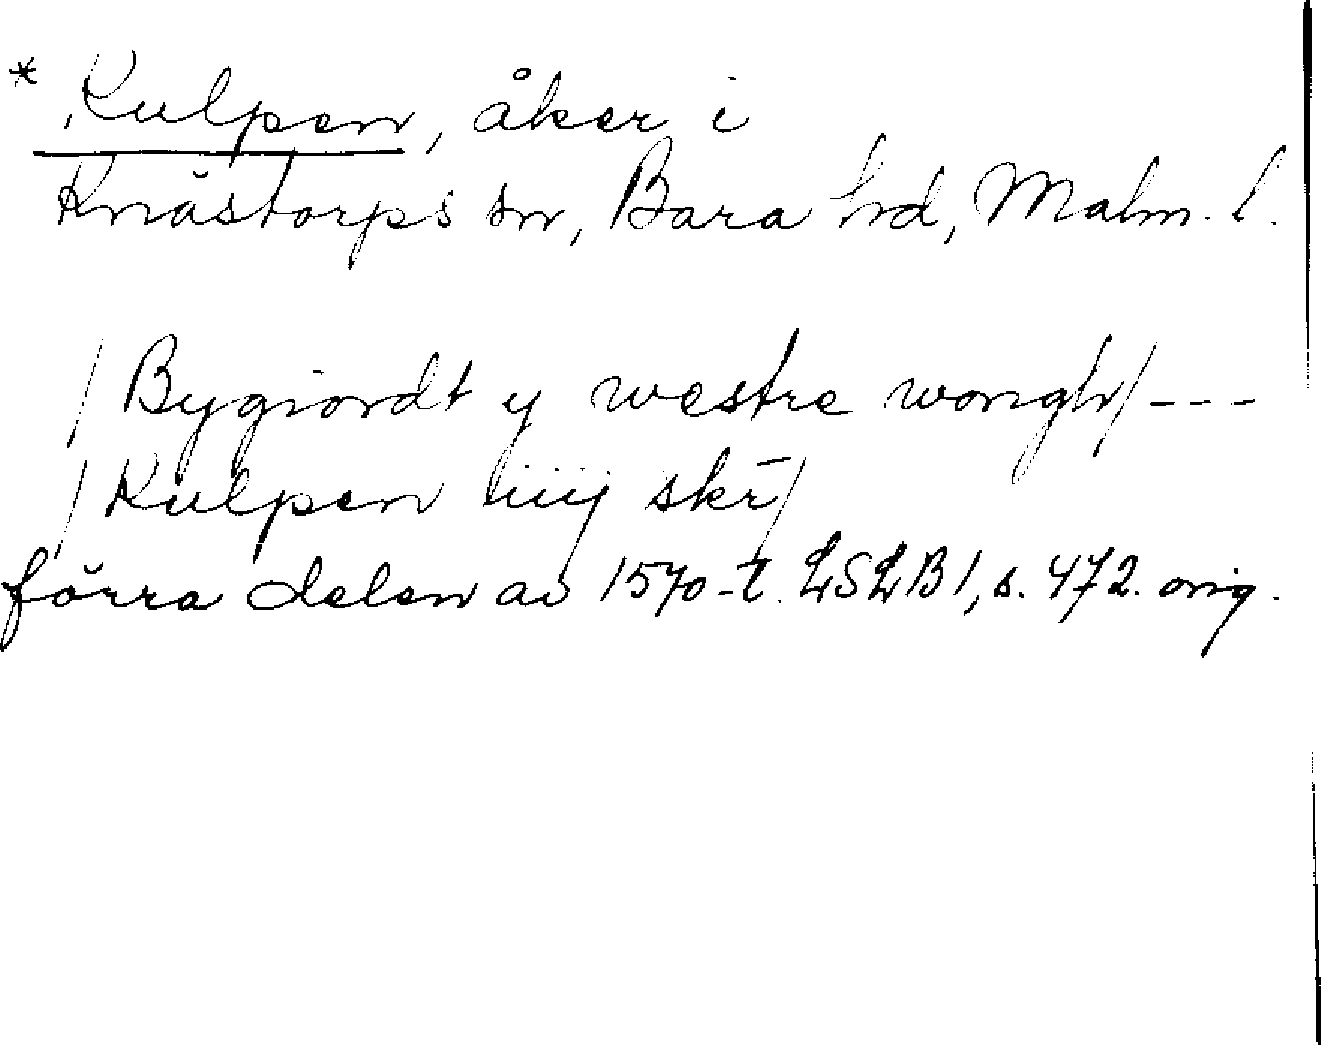 * Kulpen, åker i
Knästorps sn, Bara hd, Malm. l.
/ Bygiordt y westre wongh / ---
/ Kulpen iiij skr̄ /
förra delen av 1570-t. LSLB 1, s. 472. orig.